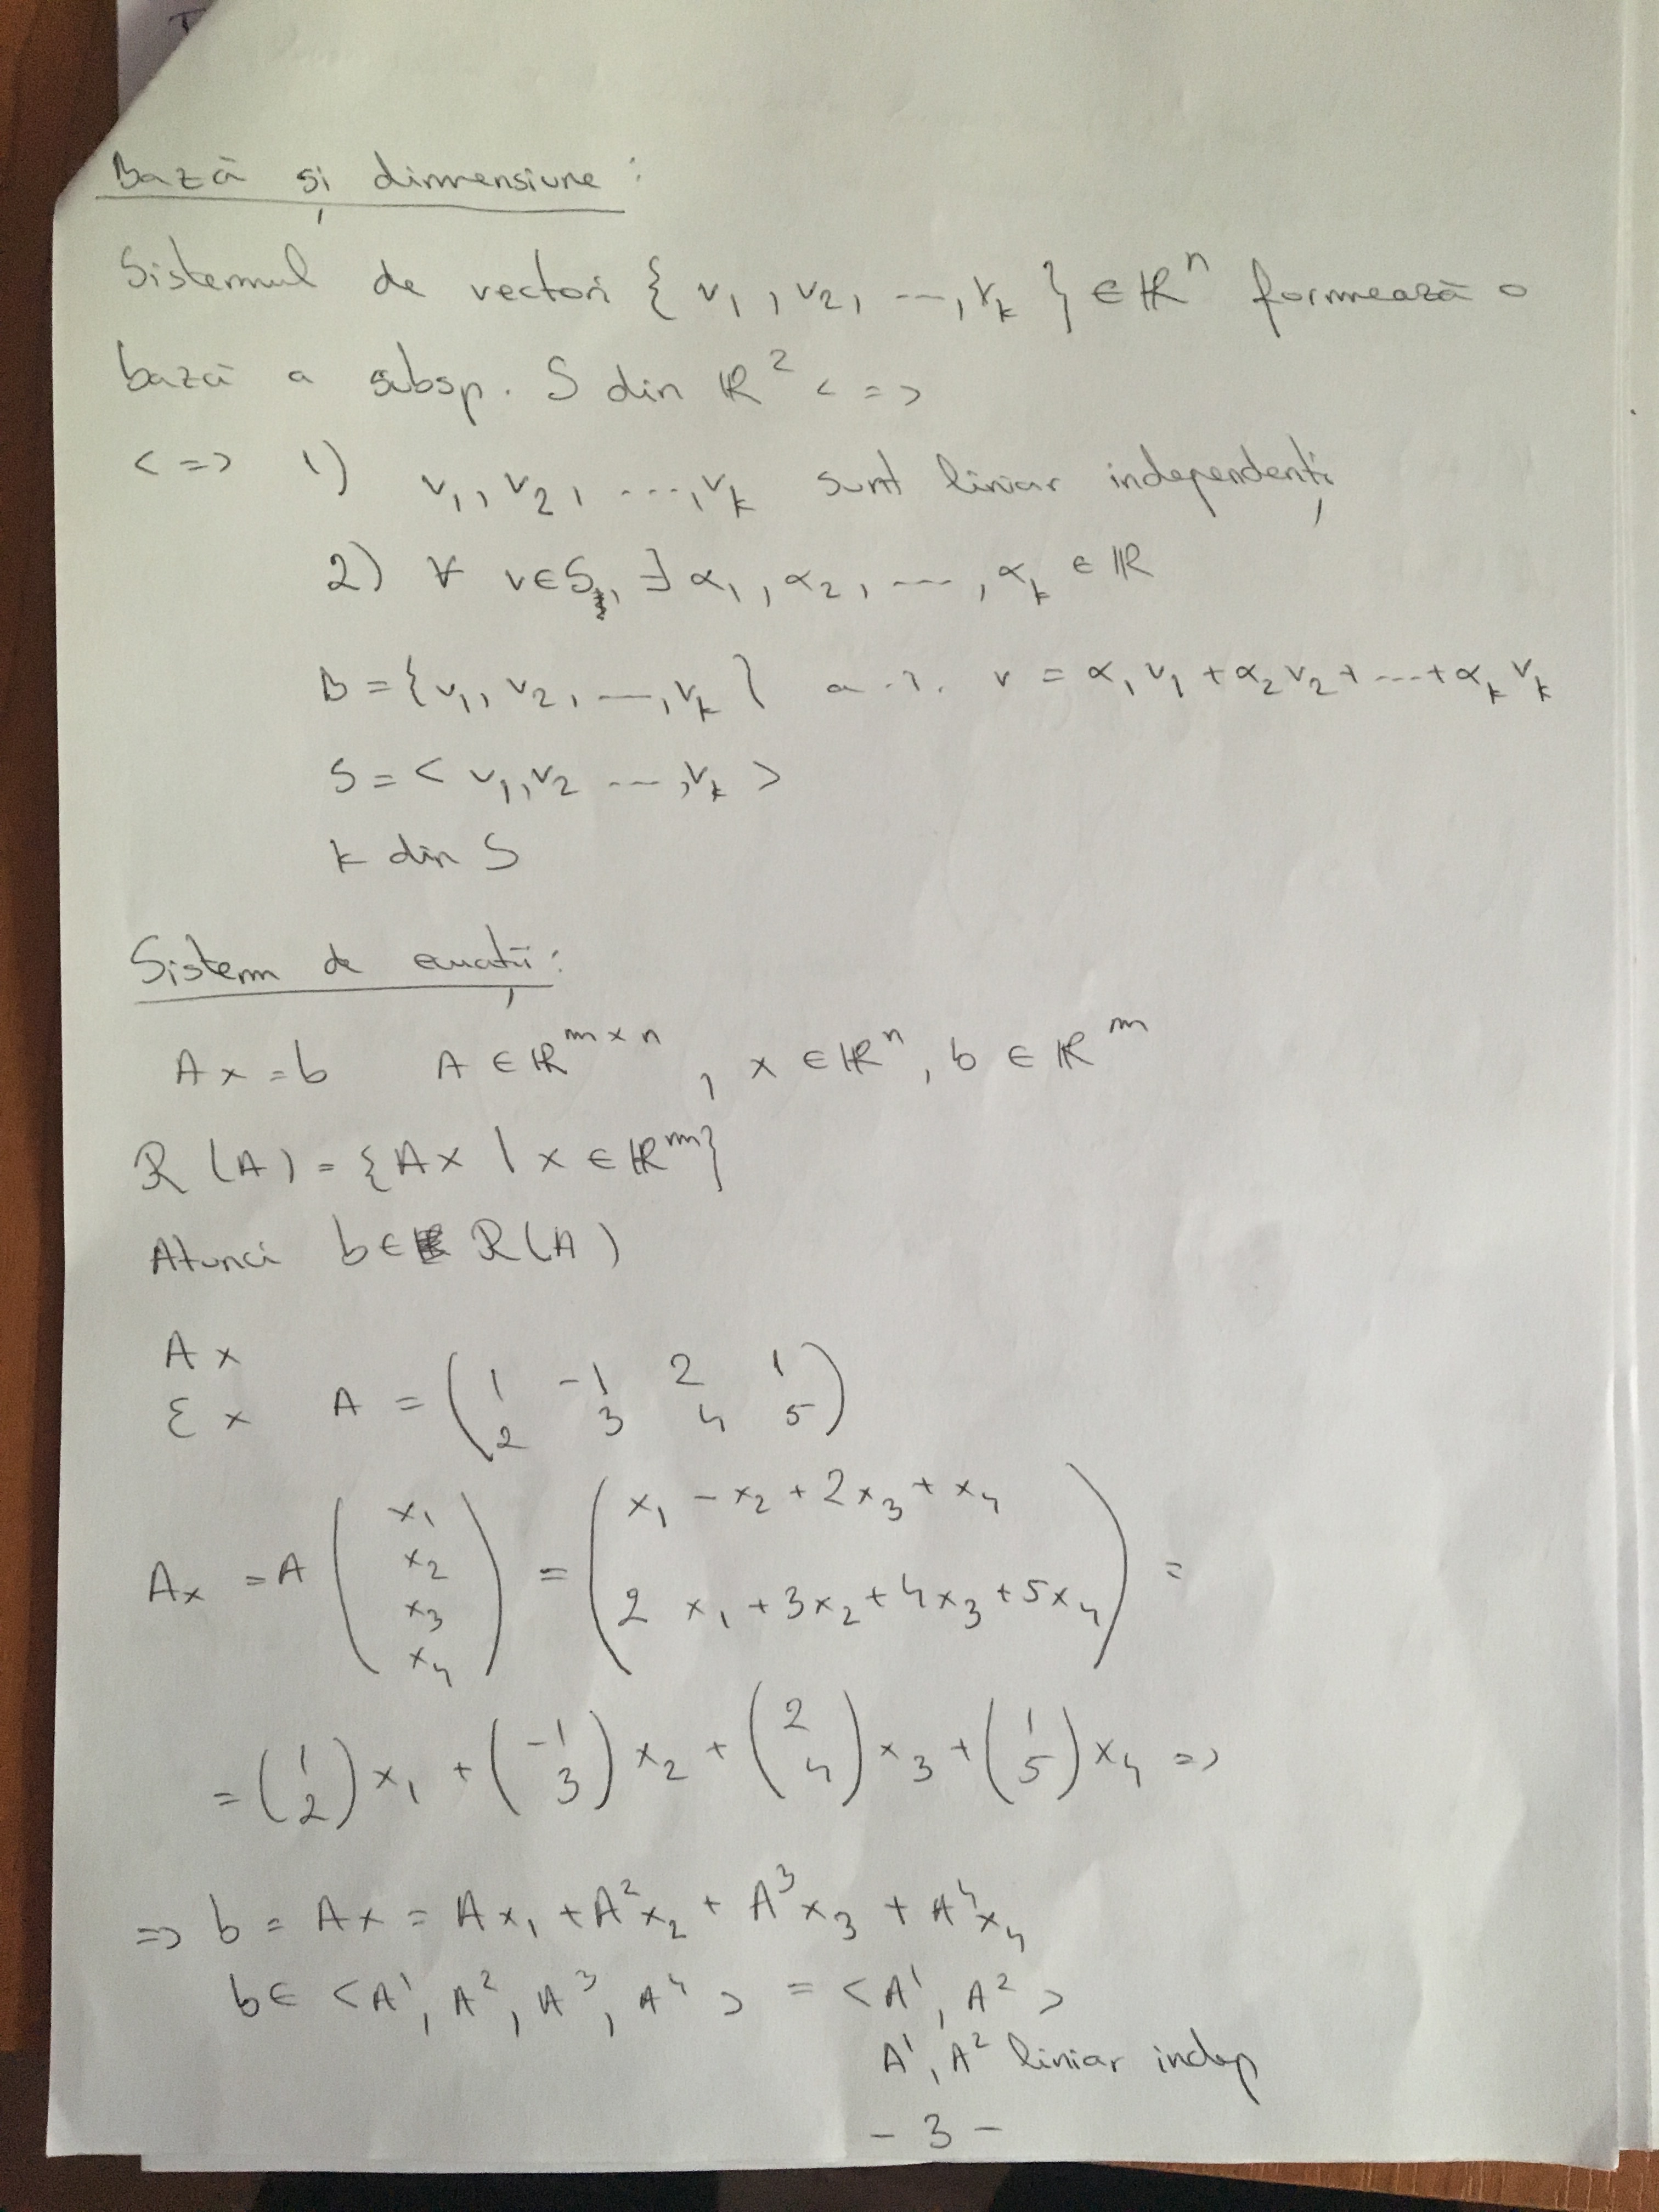 Bază și dimensiune :
Sistemul de vectori { v₁ , v₂, ..., vₖ } ∈ ℝⁿ formează o
bază a subsp. S din ℝ² <=>
<=> 1) v₁, v₂, ..., vₖ sunt liniar independenți
2) ∀ v∈S, ∃ α₁, α₂, ..., αₖ ∈ ℝ
B = {v₁, v₂, ..., vₖ } a.î. v = α₁v₁ + α₂v₂ + ... + αₖvₖ
S = < v₁, v₂ ..., vₖ >
k din S
Sistem de ecuații :
Ax = b A ∈ ℝ^{m×n} , x ∈ ℝⁿ, b ∈ ℝᵐ
R(A) = {Ax | x ∈ ℝᵐ}
Atunci b∈ R(A)
Ax
Ex A = ( 1 -1 2 1
2 3 4 5 )
Ax = A ( x₁ x₂ x₃ x₄ ) = ( x₁ - x₂ + 2x₃ + x₄
2 x₁ + 3x₂ + 4x₃ + 5x₄ ) =
= (1 2) x₁ + (-1 3) x₂ + (2 4) x₃ + (1 5) x₄ =>
=> b = Ax = Ax₁ + A²x₂ + A³x₃ + A⁴x₄
b ∈ <A¹, A², A³, A⁴> = <A¹, A²>
A¹, A² liniar indep
- 3 -